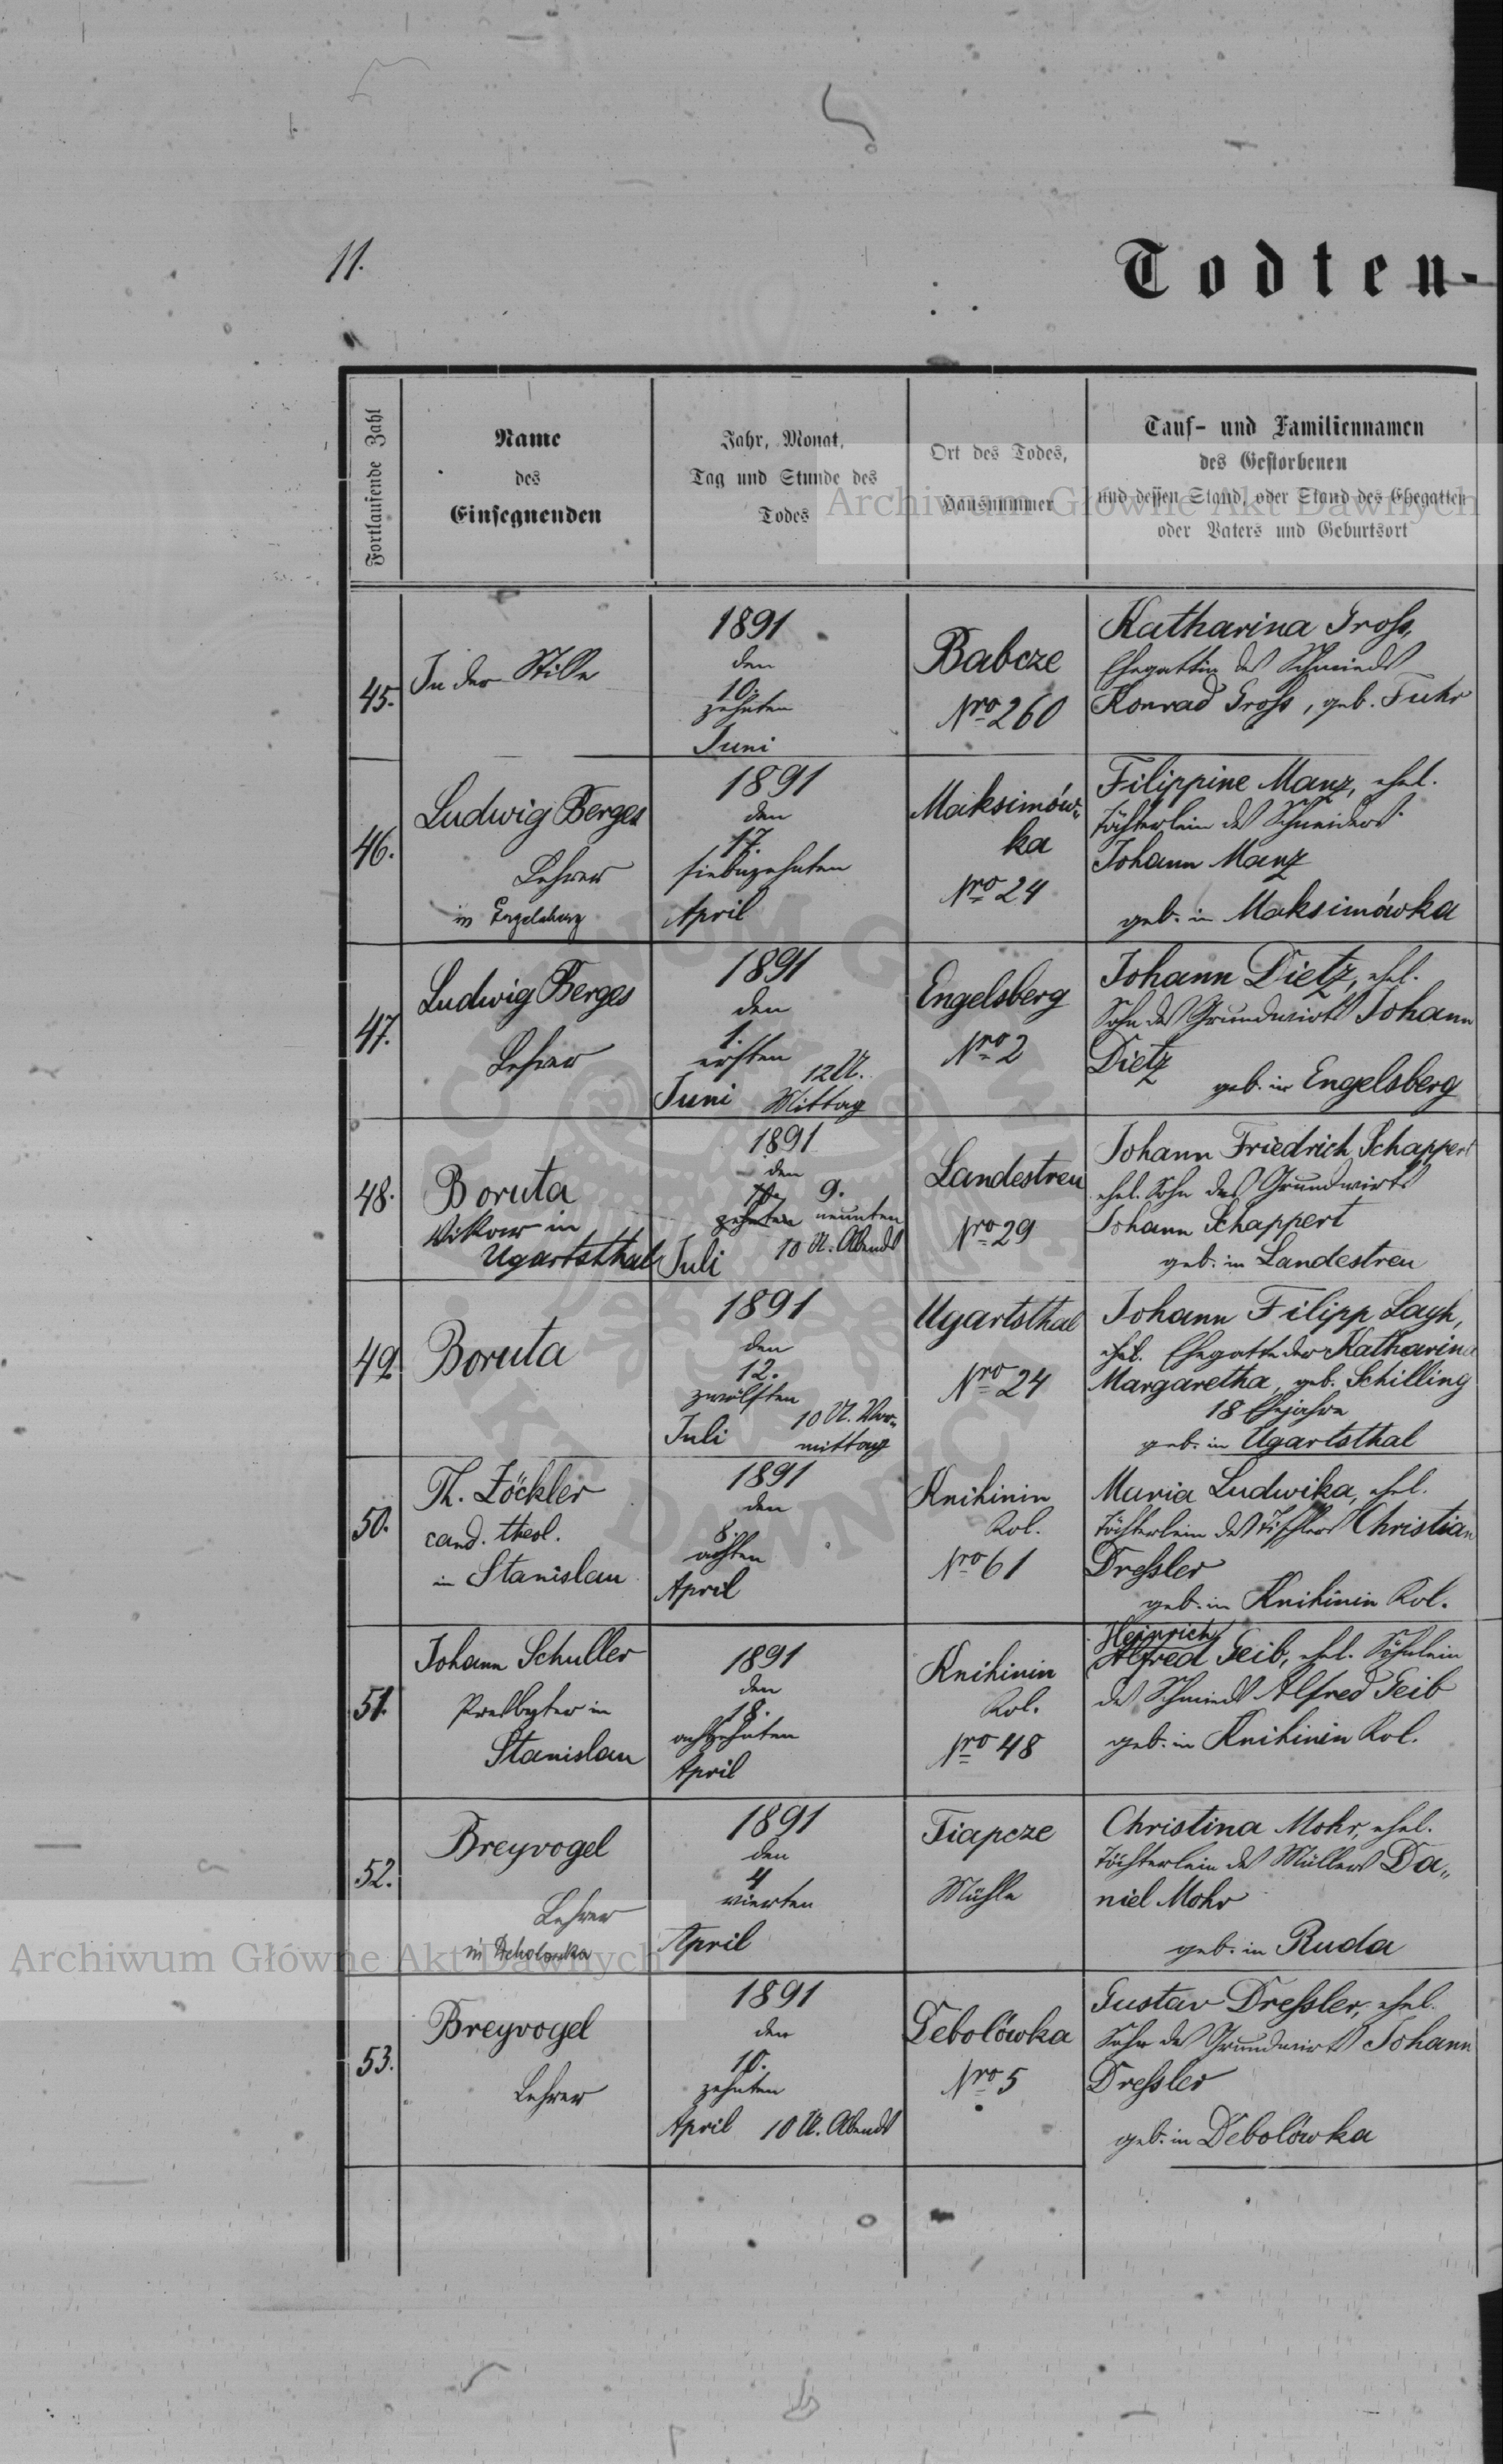 11.
Todten-
Fortlaufende Zahl
Name
des
Einsegnenden
Jahr, Monat,
Tag und Stunde des
Todes
Ort des Todes,
Hausnummer
Tauf- und Familiennamen
des Gestorbenen
und dessen Stand, oder Stand des Ehegatten
oder Vaters und Geburtsort
45.
In der Stille
1891
den
10.
zehnten
Juni
Babcze
Nro 260
Katharina Gross,
Ehegattin des Schmieds
Konrad Gross, geb. Fuhr
46.
Ludwig Berges
Lehrer
in Engelsberg
1891
den
17.
siebzehnten
April
Maksimów-
ka
Nro 24
Filippine Manz, ehel.
Töchterlein des Schneiders
Johann Manz
geb. in Maksimówka
47.
Ludwig Berges
Lehrer
1891
den
1.
ersten
12 U.
Juni Mittag
Engelsberg
Nro 2
Johann Dietz, ehel.
Sohn des Grundwirts Johann
Dietz
geb. in Engelsberg
48.
Boruta
Vikar in
Ugartsthal
1891
den
10. 9.
zehnten neunten
Juli 10 U. Abends
Landestreu
Nro 29
Johann Friedrich Schappert
ehel. Sohn des Grundwirts
Johann Schappert
geb. in Landestreu
49.
Boruta
1891
den
12.
zwölften
10 U. Vor-
Juli mittag
Ugartsthal
Nro 24
Johann Filipp Layh,
ehel. Ehegatte der Katharina
Margaretha, geb. Schilling
18 Ehejahre
geb. in Ugartsthal
50.
Th. Zöckler
cand. theol.
in Stanislau
1891
den
8.
achten
April
Knihinin
Kol.
Nro 61
Maria Ludwika, ehel.
Töchterlein des Tischlers Christian
Dressler
geb. in Knihinin Kol.
51.
Johann Schuller
Presbyter in
Stanislau
1891
den
18.
achtzehnten
April
Knihinin
Kol.
Nro 48
Heinrich
Alfred Geib, ehel. Söhnlein
des Schmieds Alfred Geib
geb. in Knihinin Kol.
52.
Breyvogel
Lehrer
in Debolowka
1891
den
4
vierten
April
Tiapcze
Mühle
Christina Mohr, ehel.
Töchterlein des Müllers Da-
niel Mohr
geb. in Ruda
53.
Breyvogel
Lehrer
1891
den
10.
zehnten
April 10 U. Abends
Debolówka
Nro 5
Gustav Dressler, ehel.
Sohn des Grundwirts Johann
Dressler
geb. in Debolówka
Archiwum Główne Akt Dawnych
Archiwum Główne Akt Dawnych
ARCHIWUM GŁÓWNE
AKT DAWNYCH